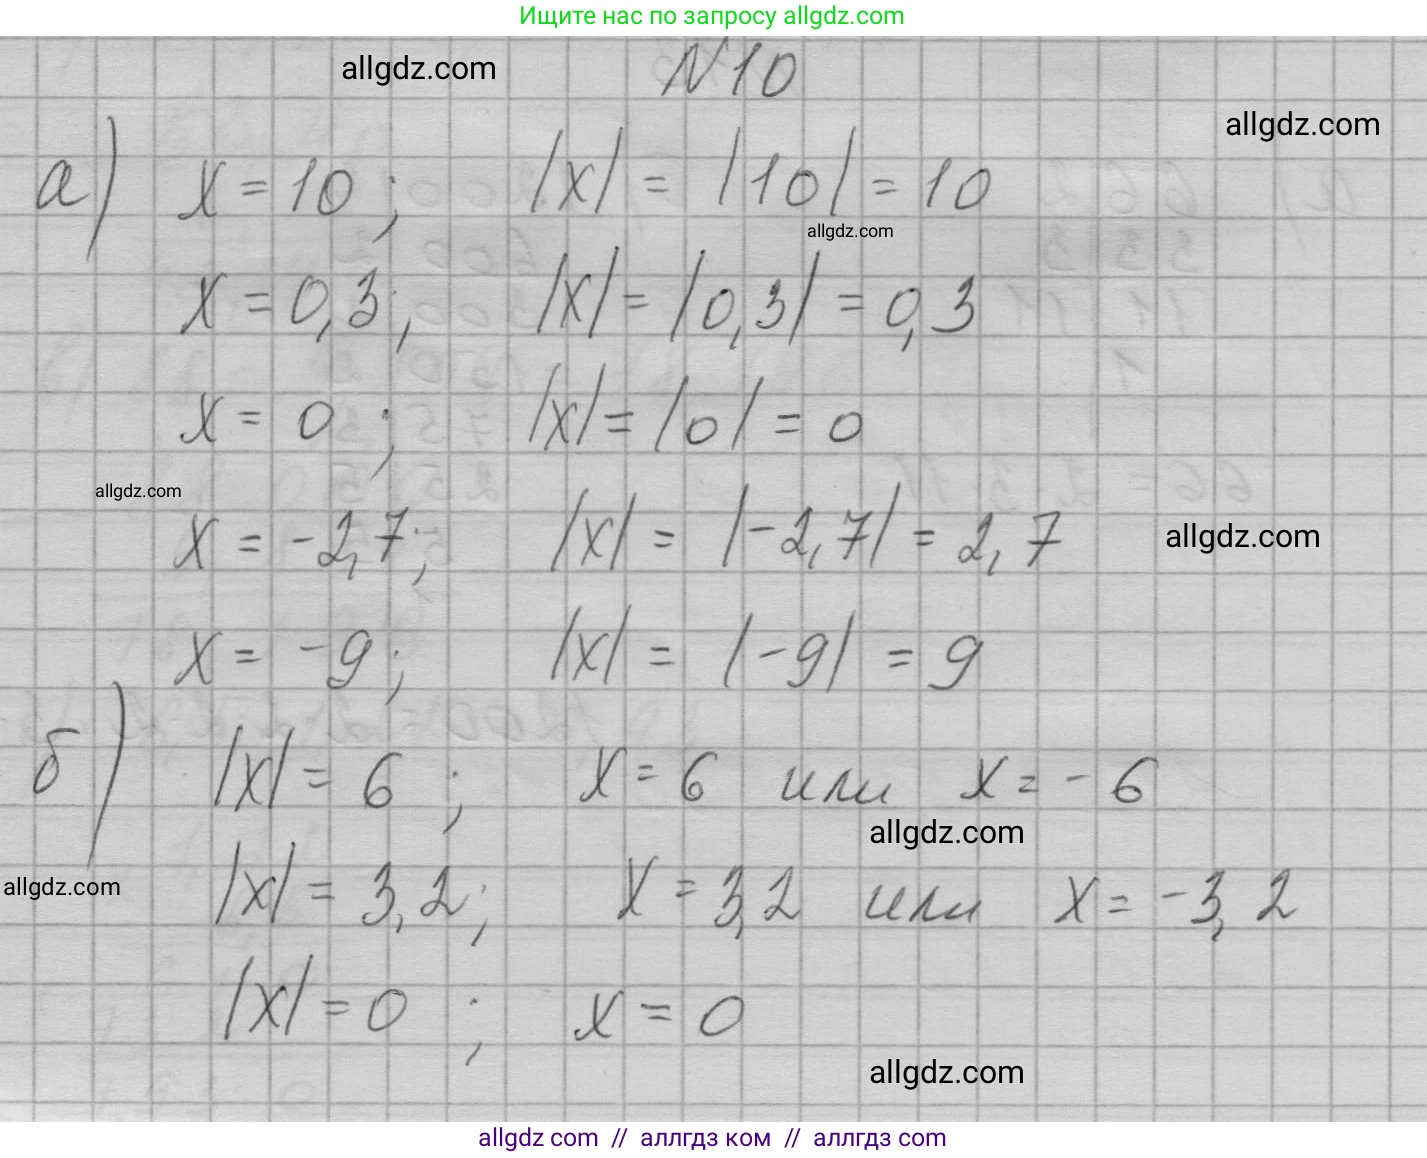 Ищите нас по запросу allgdz.com
allgdz.com
N10
allgdz.com
а) x = 10 ; |x| = |10| = 10
allgdz.com
x = 0,3 ; |x| = |0,3| = 0,3
x = 0 ; |x| = |0| = 0
allgdz.com
x = -2,7 ; |x| = |-2,7| = 2,7
allgdz.com
x = -9 ; |x| = |-9| = 9
б) |x| = 6 ; x = 6 или x = -6
allgdz.com
allgdz.com
|x| = 3,2 ; x = 3,2 или x = -3,2
|x| = 0 ; x = 0
allgdz.com
allgdz com // аллгдз ком // аллгдз com